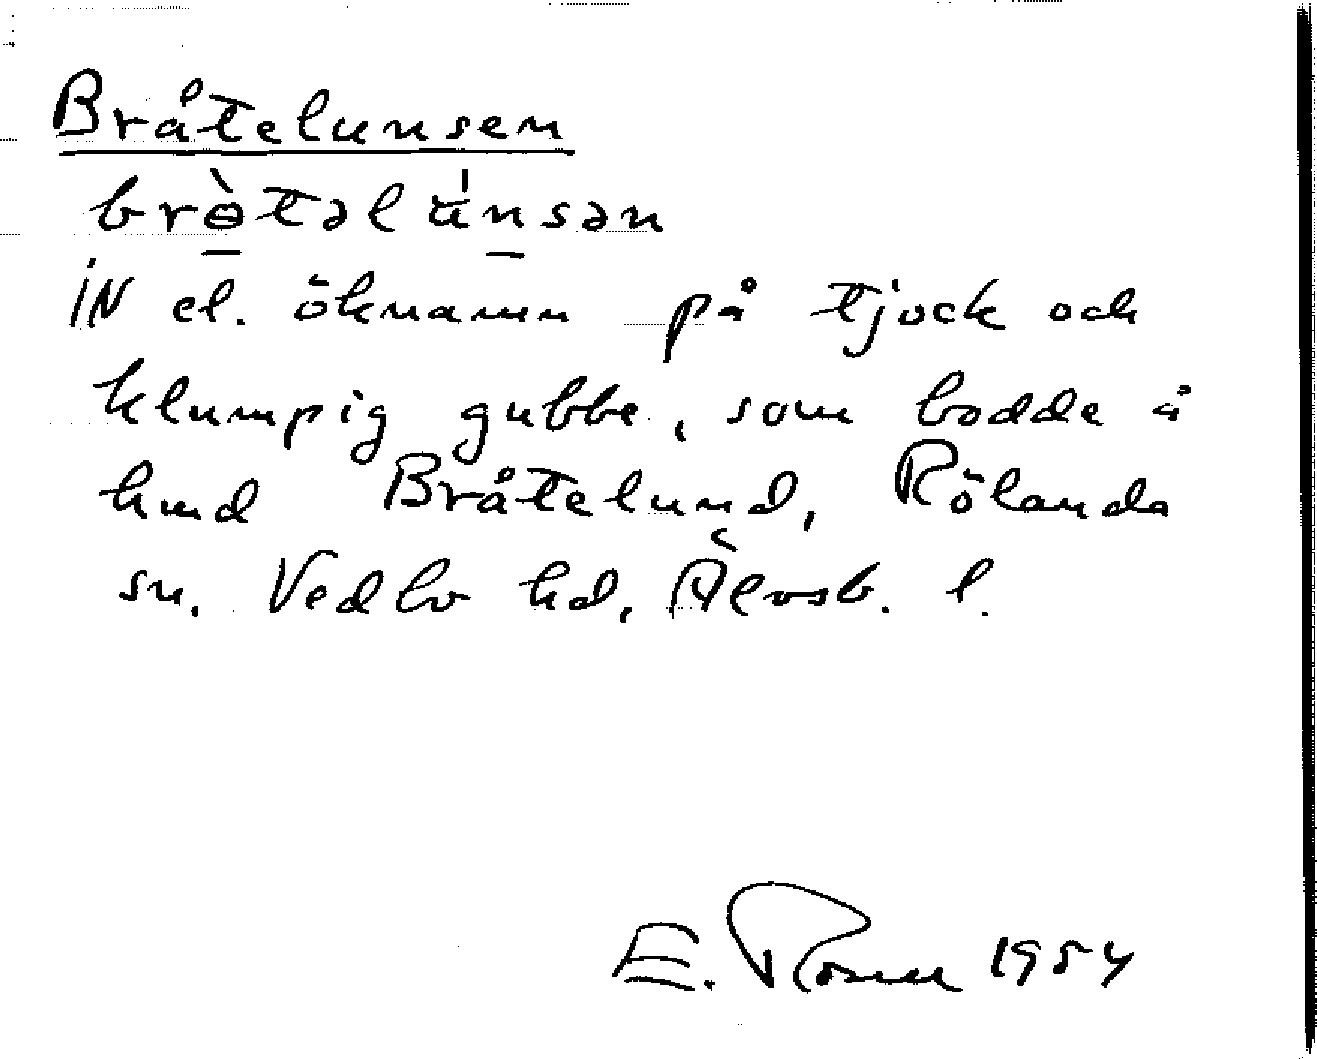 Bråtelunsen
brɵ̀təlúnsən
IN el. öknamn på tjock och
klumpig gubbe, som bodde å
hmd Bråtelund, Rölanda
sn. Vedbo hd, Älvsb. l.
E. Rosell 1954